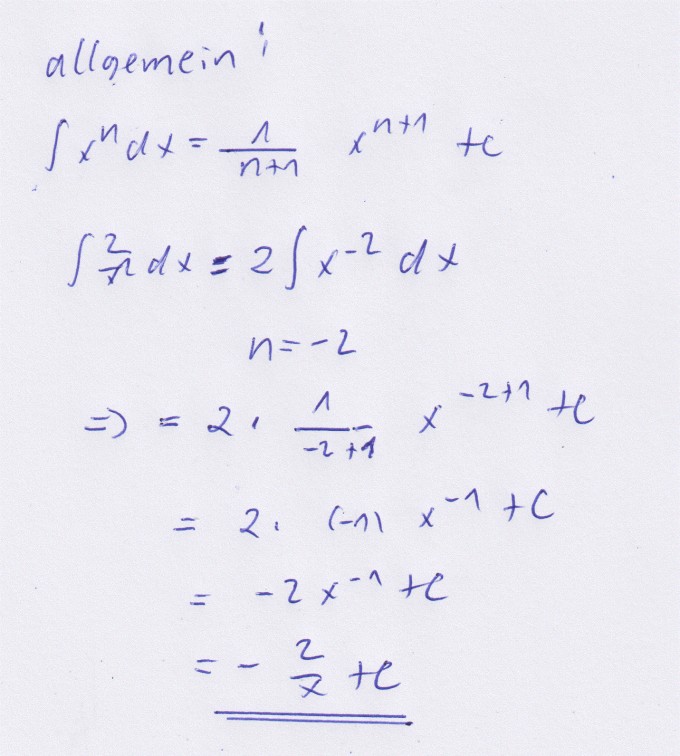 allgemein:
∫ xⁿ dx = 1/(n+1) xⁿ⁺¹ + c
∫ 2/x² dx = 2 ∫ x⁻² dx
n = -2
=> = 2 · 1/(-2+1) x⁻²⁺¹ + C
= 2 · (-1) x⁻¹ + C
= -2 x⁻¹ + C
= - 2/x + C